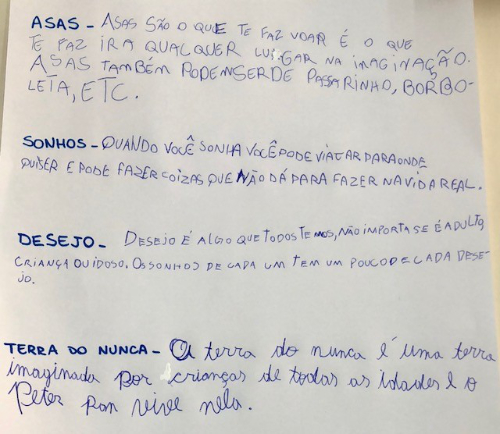 ASAS - ASAS SÃO O QUE TE FAZ VOAR É O QUE
TE FAZ IR A QUALQUER LUGAR NA IMAGINAÇÃO.
ASAS TAMBÉM PODEM SER DE PASSARINHO, BORBO-
LETA, ETC.
SONHOS - QUANDO VOCÊ SONHA VOCÊ PODE VIAJAR PARA ONDE
QUISER E PODE FAZER COIZAS QUE NÃO DÁ PARA FAZER NA VIDA REAL.
DESEJO - DESEJO É ALGO QUE TODOS TEMOS, NÃO IMPORTA SE É ADULTO,
CRIANÇA OU IDOSO. OS SONHOS DE CADA UM TEM UM POUCO DE CADA DESE-
JO.
TERRA DO NUNCA - A terra do nunca é uma terra
imaginada por crianças de todas as idades e o
Peter Pan vive nela.